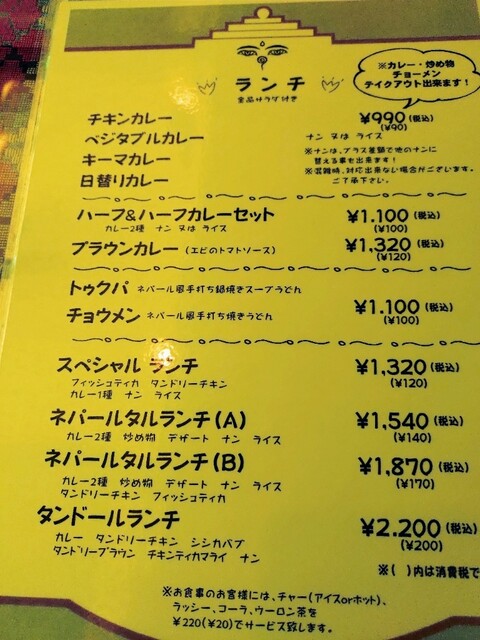 ※カレー・炒め物
チョーメン
テイクアウト出来ます!
ランチ
全品サラダ付き
チキンカレー ¥990(税込)
(¥90)
ベジタブルカレー ナン 又は ライス
キーマカレー ※ナンは、プラス差額で他のナンに
替える事も出来ます!
日替りカレー ※混雑時、対応出来ない場合がございます。
ご了承下さい。
ハーフ&ハーフカレーセット ¥1.100(税込)
カレー2種 ナン 又は ライス (¥100)
ブラウンカレー(エビのトマトソース) ¥1,320(税込)
(¥120)
トゥクパ ネパール風手打ち鍋焼きスープうどん
チョウメン ネパール風手打ち焼きうどん ¥1.100(税込)
(¥100)
スペシャル ランチ ¥1,320(税込)
フィッショティカ タンドリーチキン (¥120)
カレー1種 ナン ライス
ネパールタルランチ(A) ¥1,540(税込)
カレー2種 炒め物 デザート ナン ライス (¥140)
ネパールタルランチ(B) ¥1,870(税込)
カレー2種 炒め物 デザート ナン ライス (¥170)
タンドリーチキン フィッショティカ
タンドールランチ ¥2.200(税込)
カレー タンドリーチキン シシカバブ (¥200)
タンドリーブラウン チキンティカマライ ナン
※( )内は消費税で
※お食事のお客様には、チャー(アイスorホット)、
ラッシー、コーラ、ウーロン茶を
¥220(¥20)でサービス致します。